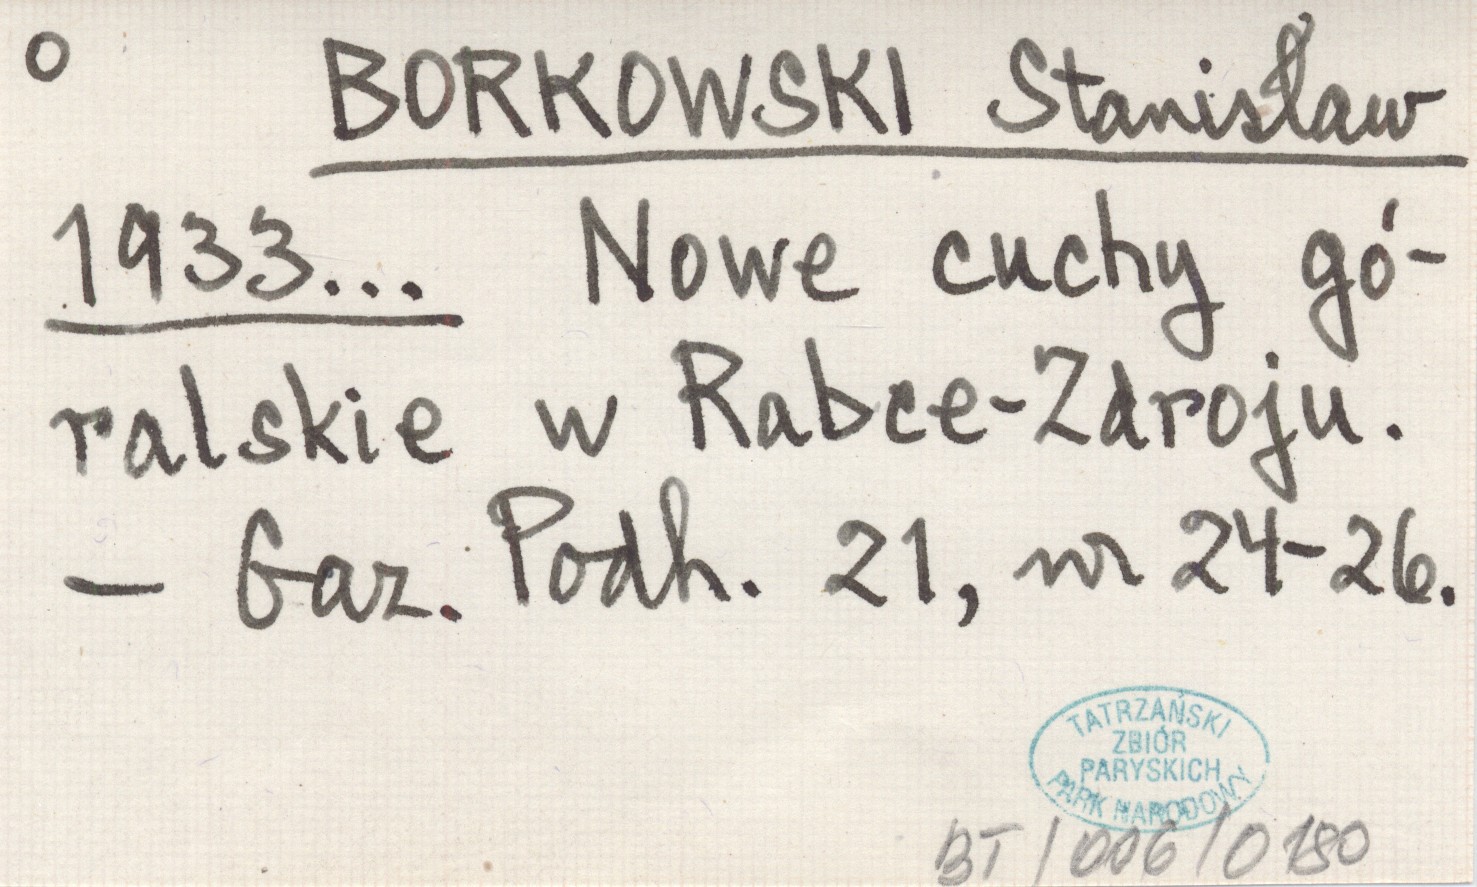 o BORKOWSKI Stanisław
1933... Nowe cuchy gó-
ralskie w Rabce-Zdroju.
— Gaz. Podh. 21, nr 24-26.
TATRZAŃSKI
ZBIÓR
PARYSKICH
PARK NARODOWY
BT/006/0180